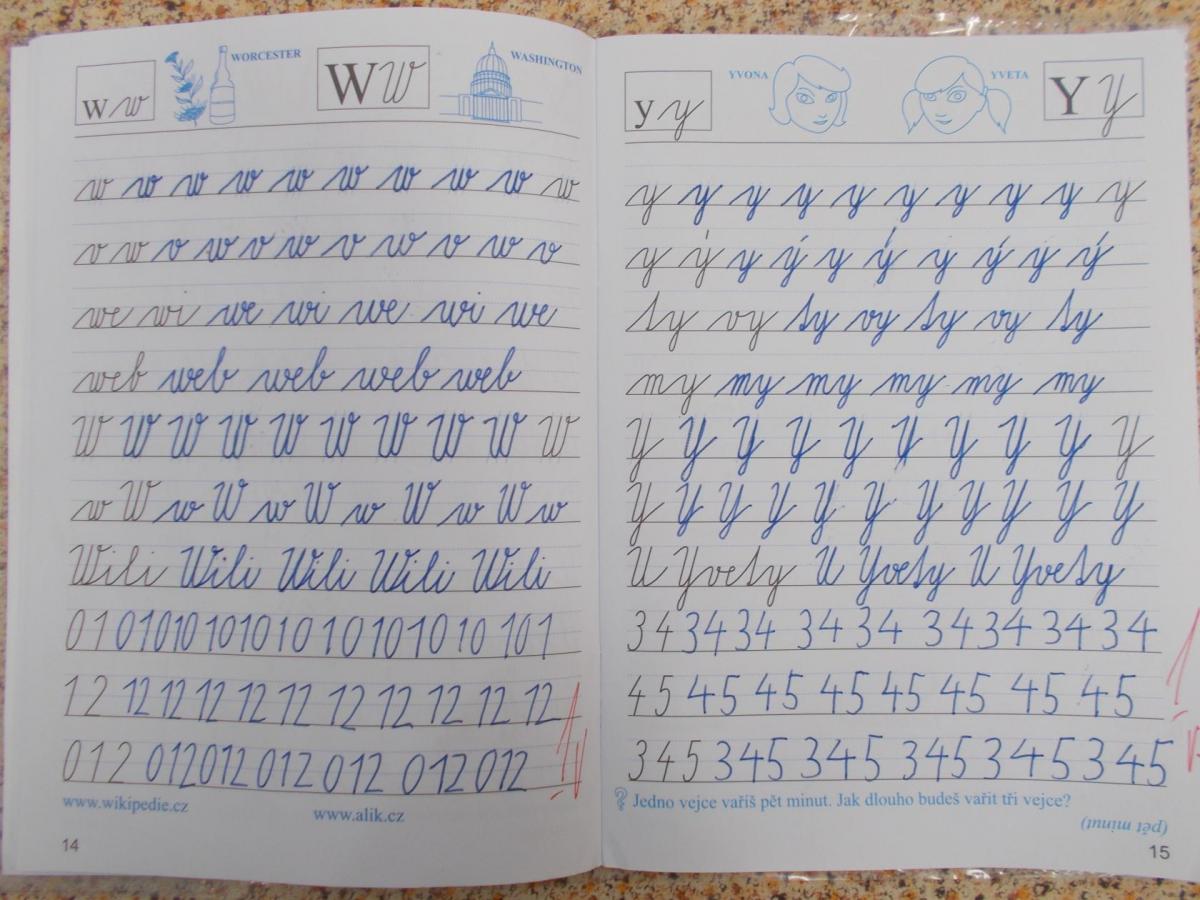 w w WORCESTER W W WASHINGTON
w w w w w w w w w w
v w v w v w v w v w v
we wi we wi we wi we
web web web web web
W W W W W W W W W W
w W w W w W w W w W w
Wili Wili Wili Wili Wili
0 1 0 1 0 1 0 1 0 1 0 1 0 1 0 1 0 1 0 1 0 1 0 1
1 2 12 12 12 12 12 12 12 12 12
0 1 2 012 012 012 012 012 012
www.wikipedie.cz www.alik.cz
14
y y YVONA YVETA Y Y
y y y y y y y y y y
y ý y ý y ý y ý y ý
ty vy ty vy ty vy ty
my my my my my my
Y Y Y Y Y Y Y Y Y Y
Y Y Y Y Y Y Y Y Y Y Y
U Yvety U Yvety U Yvety
3 4 34 34 34 34 34 34 34 34
4 5 45 45 45 45 45 45 45
3 4 5 345 345 345 345 345
Jedno vejce vaříš pět minut. Jak dlouho budeš vařit tři vejce?
(pět minut)
15